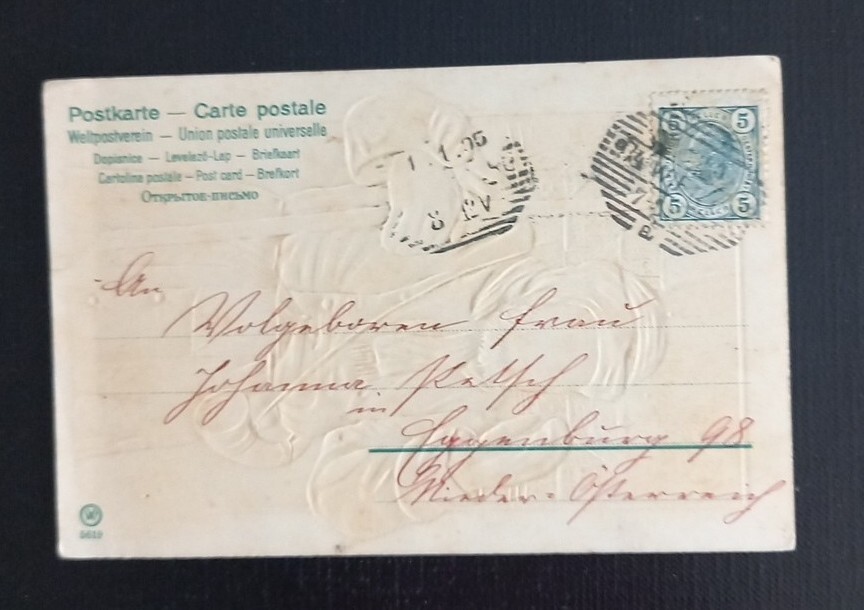 Postkarte — Carte postale
Weltpostverein — Union postale universelle
Dopisnice — Levelező-Lap — Briefkaart
Cartolina postale — Post card — Brefkort
Открытое письмо
5 5
5 5
1.05
8
An
Wolgeboren Frau
Johanna Petsch
in
Eggenburg 98
Nieder-Österreich
5619